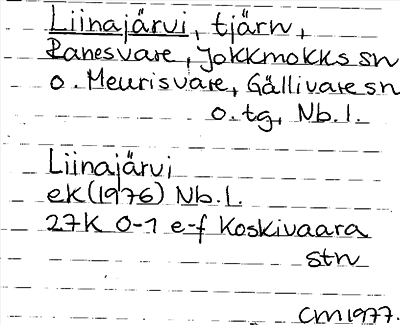 Liinajärvi, tjärn,
Ranesvare, Jokkmokks sn
o. Meurisvare, Gällivare sn
o. tg, Nb. l.
Liinajärvi
ek (1976) Nb. l.
27K 0-1 e-f Koskivaara
stn
CM 1977.